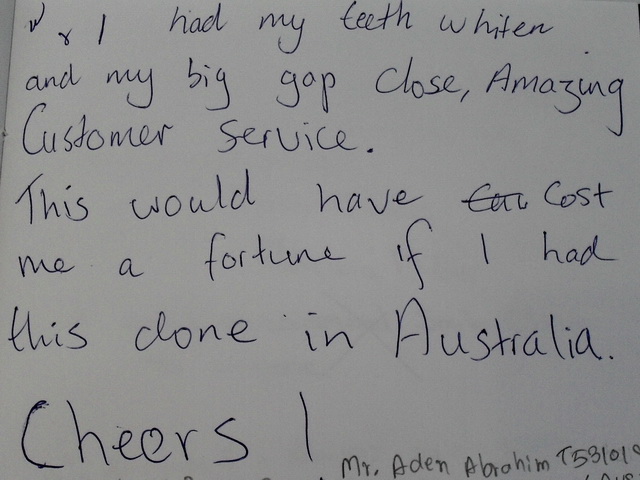 I had my teeth whiten
and my big gap close, Amazing
Customer Service.
This would have Cost
me a fortune if I had
this done in Australia.
Cheers !
Mr. Aden Abrahim